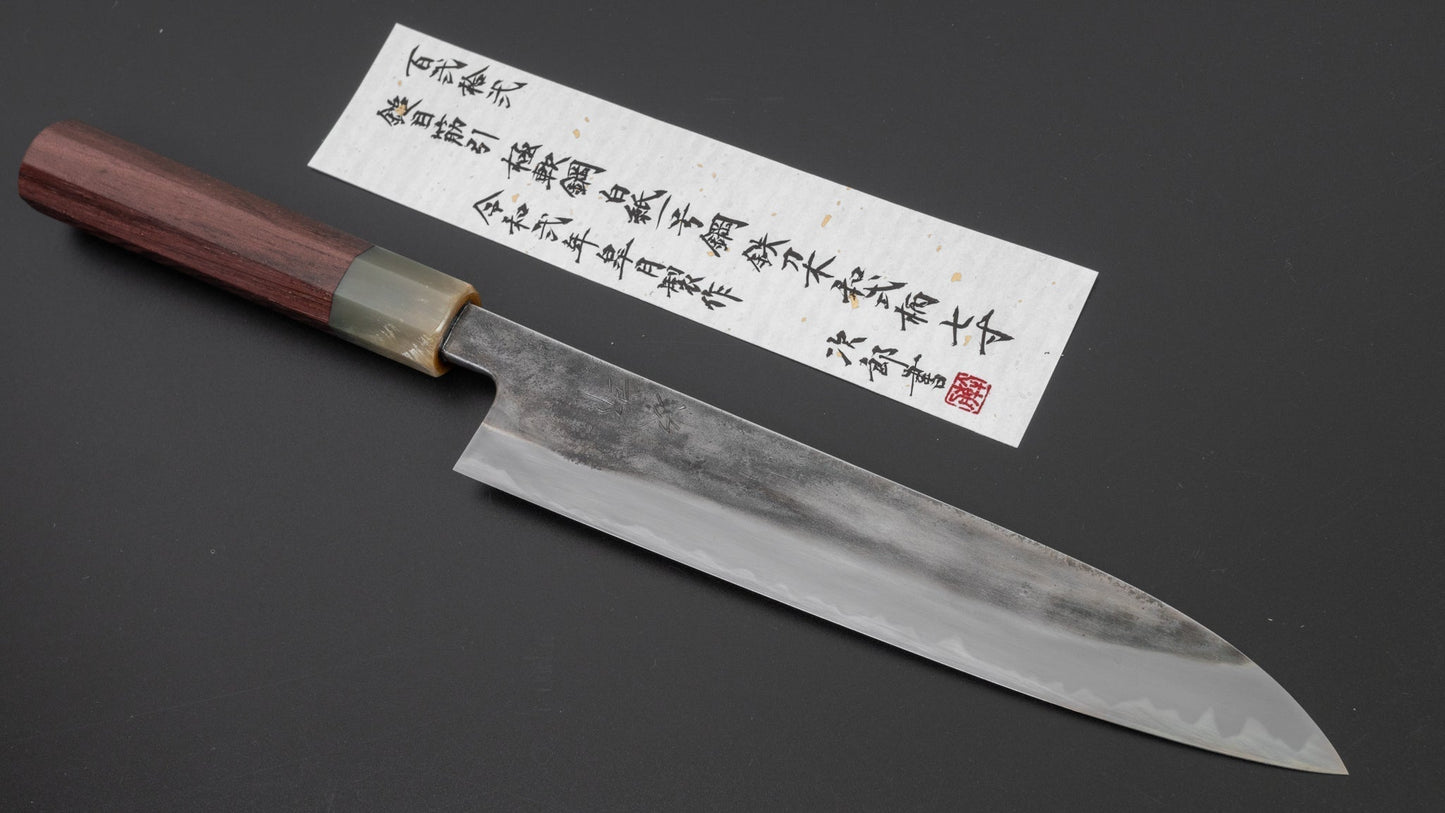 百弐拾弐
鎚目筋引 極軟鋼 白紙一号鋼 鉄刀木和式柄 七寸
令和弐年皐月製作
次郎書